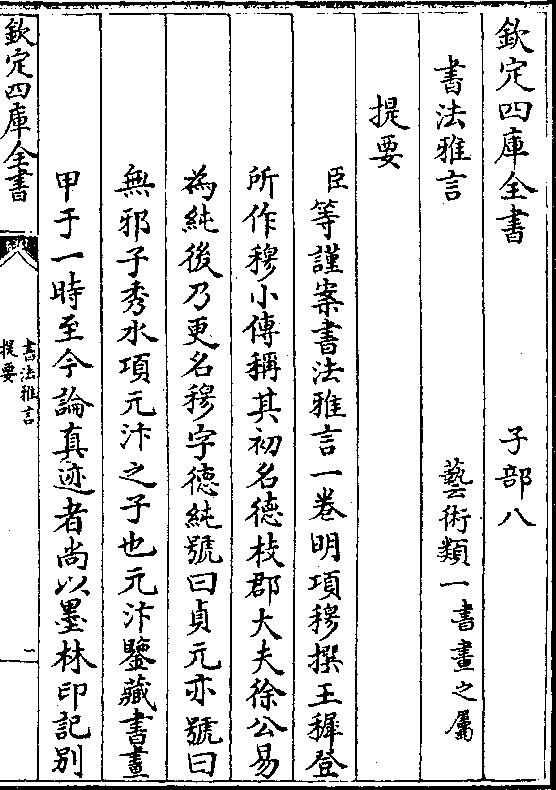 欽定四庫全書 子部八
書法雅言 藝術類一書畫之屬
提要
臣等謹案書法雅言一卷明項穆撰王穉登
所作穆小傳稱其初名德枝郡大夫徐公易
為純後乃更名穆字德純號曰貞元亦號曰
無邪子秀水項元汴之子也元汴鑒藏書畫
甲于一時至今論真迹者尚以墨林印記别
欽定四庫全書
書法雅言
提要
一